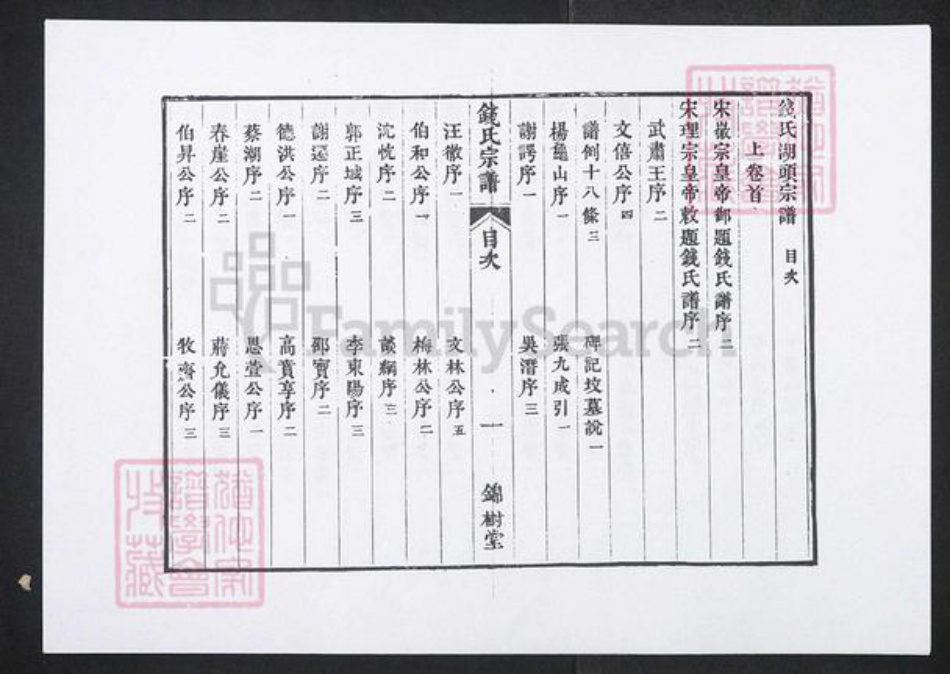 錢氏湖頭宗譜 目次
上卷首
宋徽宗皇帝御題錢氏譜序 二
宋理宗皇帝敕題錢氏譜序 二
武肅王序 二
文僖公序 四
譜例十八條 三 碑記墳墓說 一
楊龜山序 一 張九成引 一
謝諤序 一 吳潛序 三
錢氏宗譜 目次 一 錦樹堂
汪徹序 一 文林公序 五
伯和公序 一 梅林公序 二
沈忱序 二 談綱序 三
郭正域序 三 李東陽序 三
謝遷序 二 邵寶序 二
德洪公序 一 高賁亨序 二
蔡潮序 二 思萱公序 一
春崖公序 二 蔣允儀序 三
伯昇公序 二 牧齋公序 三
FamilySearch